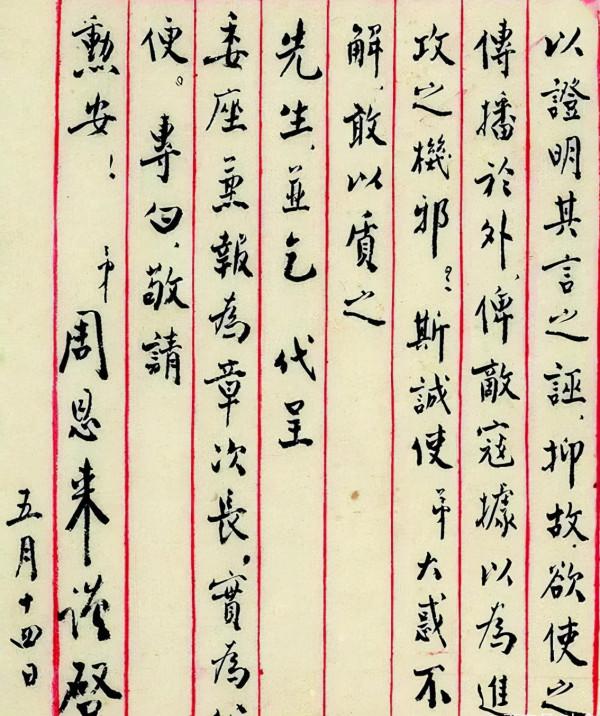 以證明其言之誣、抑故欲使之
傳播於外、俾敵寇據以為進
攻之機邪？斯誠使弟大惑不
解、敢以質之
先生、並乞 代呈
委座 並報為章次長、實為
便。專此、敬請
勳安！
弟周恩来謹啓
五月十四日